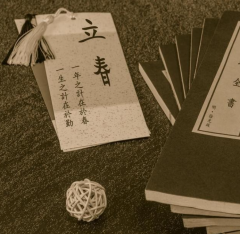 立春
一年之計在於春
一生之計在於勤
全書